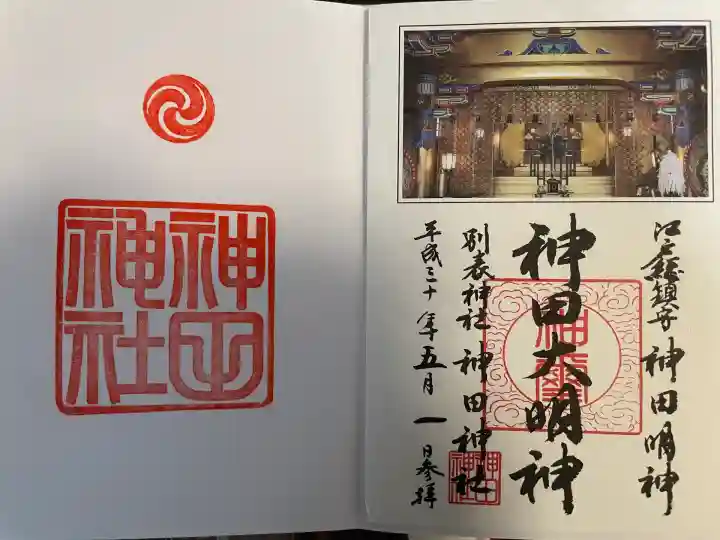 江戸総鎮守 神田明神
神田大明神
別表神社 神田神社
平成三十年五月一日参拝
神田
神社
神田
神社